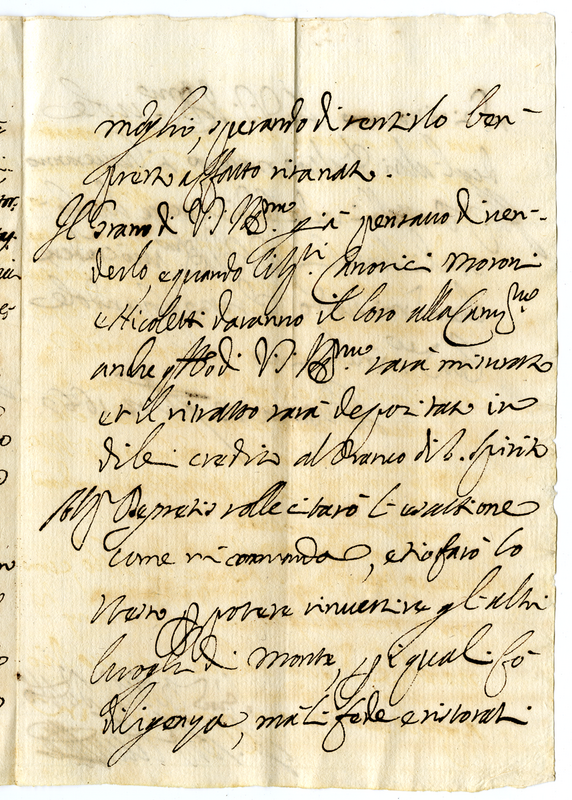 meglio, sperando di sentirlo ben-
presto affatto risanato.
Il Grano di V. S. Ill.mo già pensavo di ven-
derlo, e quando li SS.ri Canonici Moroni
e Nicoletti daranno il loro alla
anche di V. S. Ill.mo sarà misurato
et il ritratto sarà depositato in
di lei credito al Banco di S. Spirito
Depretis sollecitarò l'esattione
come mi comanda, et io farò lo
stesso p potere rinvestire gl'altri
luoghi di Monte, p i quali fò
diligenza, mà li fede e ristorati